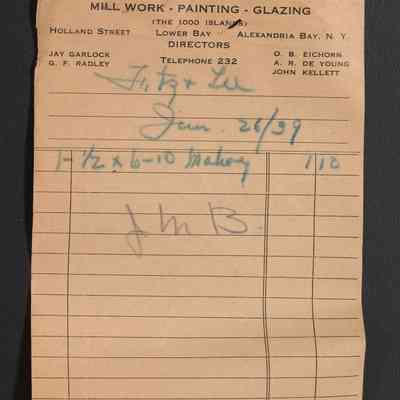 MILL WORK - PAINTING - GLAZING
(THE 1000 ISLANDS)
HOLLAND STREET LOWER BAY ALEXANDRIA BAY, N. Y.
DIRECTORS
JAY GARLOCK O. B. EICHORN
G. F. RADLEY TELEPHONE 232 A. R. DE YOUNG
JOHN KELLETT
Fitz & Lee
Jan. 26/39
1- 1/2 x 6-10 Mahog 1 10
J M B.